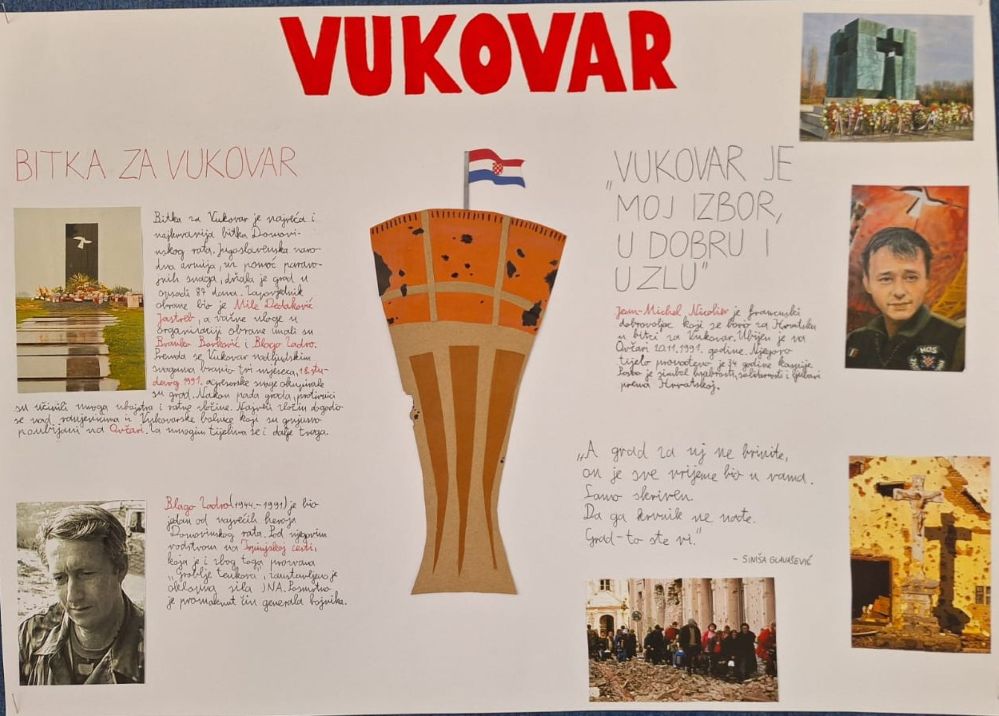 VUKOVAR
BITKA ZA VUKOVAR
Bitka za Vukovar je najveća i
najkrvavija bitka Domovin-
skog rata. Jugoslavenska naro-
dna armija, uz pomoć paravo-
jnih snaga, držala je grad u
opsadi 87 dana. Zapovjednik
obrane bio je Mile Dedaković
Jastreb, a važne uloge u
organizaciji obrane imali su
Branko Borković i Blago Zadro.
Premda se Vukovar nadljudskim
snagama branio tri mjeseca, 18. stu-
denog 1991. agresorske snage okupirale
su grad. Nakon pada grada, protivnici
su učinili mnoga ubojstva i ratne zločine. Najveći zločin dogodio
se nad ranjenicima iz Vukovarske bolnice koji su
poubijani na Ovčari. Za mnogim tijelima se i dalje traga.
Blago Zadro (1944.-1991) je bio
jedan od najvećih heroja
Domovinskog rata. Pod njegovim
vodstvom na Trpinjskoj cesti,
koja je i zbog toga prozvana
"Groblje tenkova", zaustavljena je
oklopna sila JNA. Posmrtno
je promaknut čin generala bojnika.
„VUKOVAR JE
MOJ IZBOR,
U DOBRU I
U ZLU"
Jean-Michel Nicolier je francuski
dobrovoljac koji se borio za Hrvatsku
u bitci za Vukovar. Ubijen je na
Ovčari 20.11.1991. godine. Njegovo
tijelo pronađeno je 34 godine kasnije.
je simbol hrabrosti, solidarnosti i ljubavi
prema Hrvatskoj.
HOS
„A grad za nj ne brinite,
on je sve vrijeme bio u vama.
Samo skriven.
Da ga krvnik ne nađe.
Grad-to ste vi."
- SINIŠA GLAVAŠEVIĆ